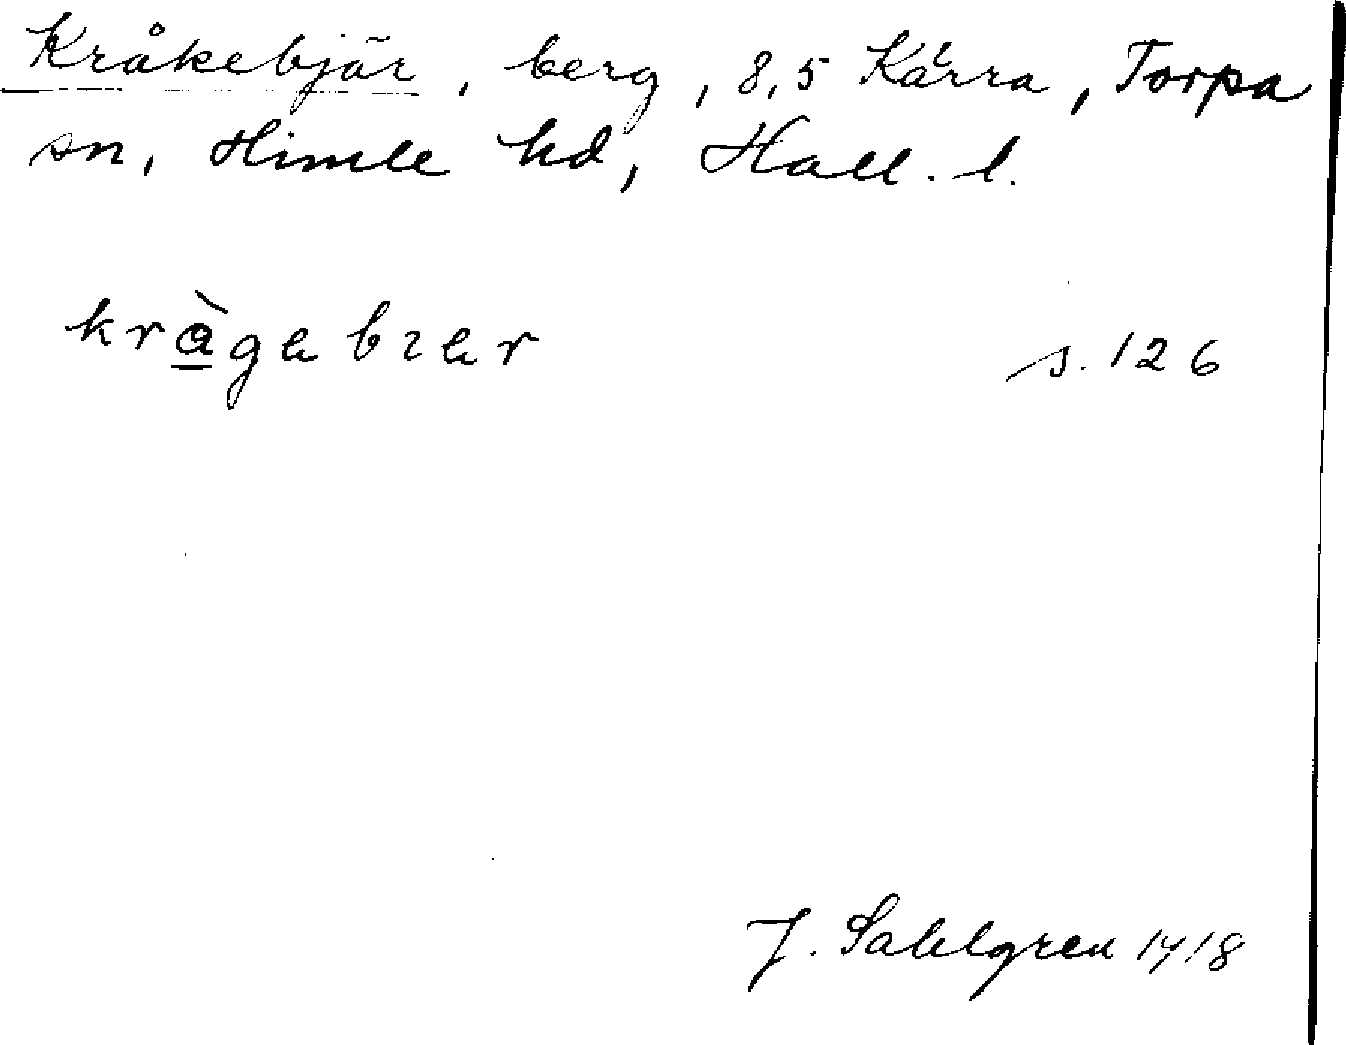 Kråkebjär, berg, 8,5 Kärra, Torpa
sn, Himle hd, Hall. l.
kràgabıar s. 126
J. Sahlgren 1918